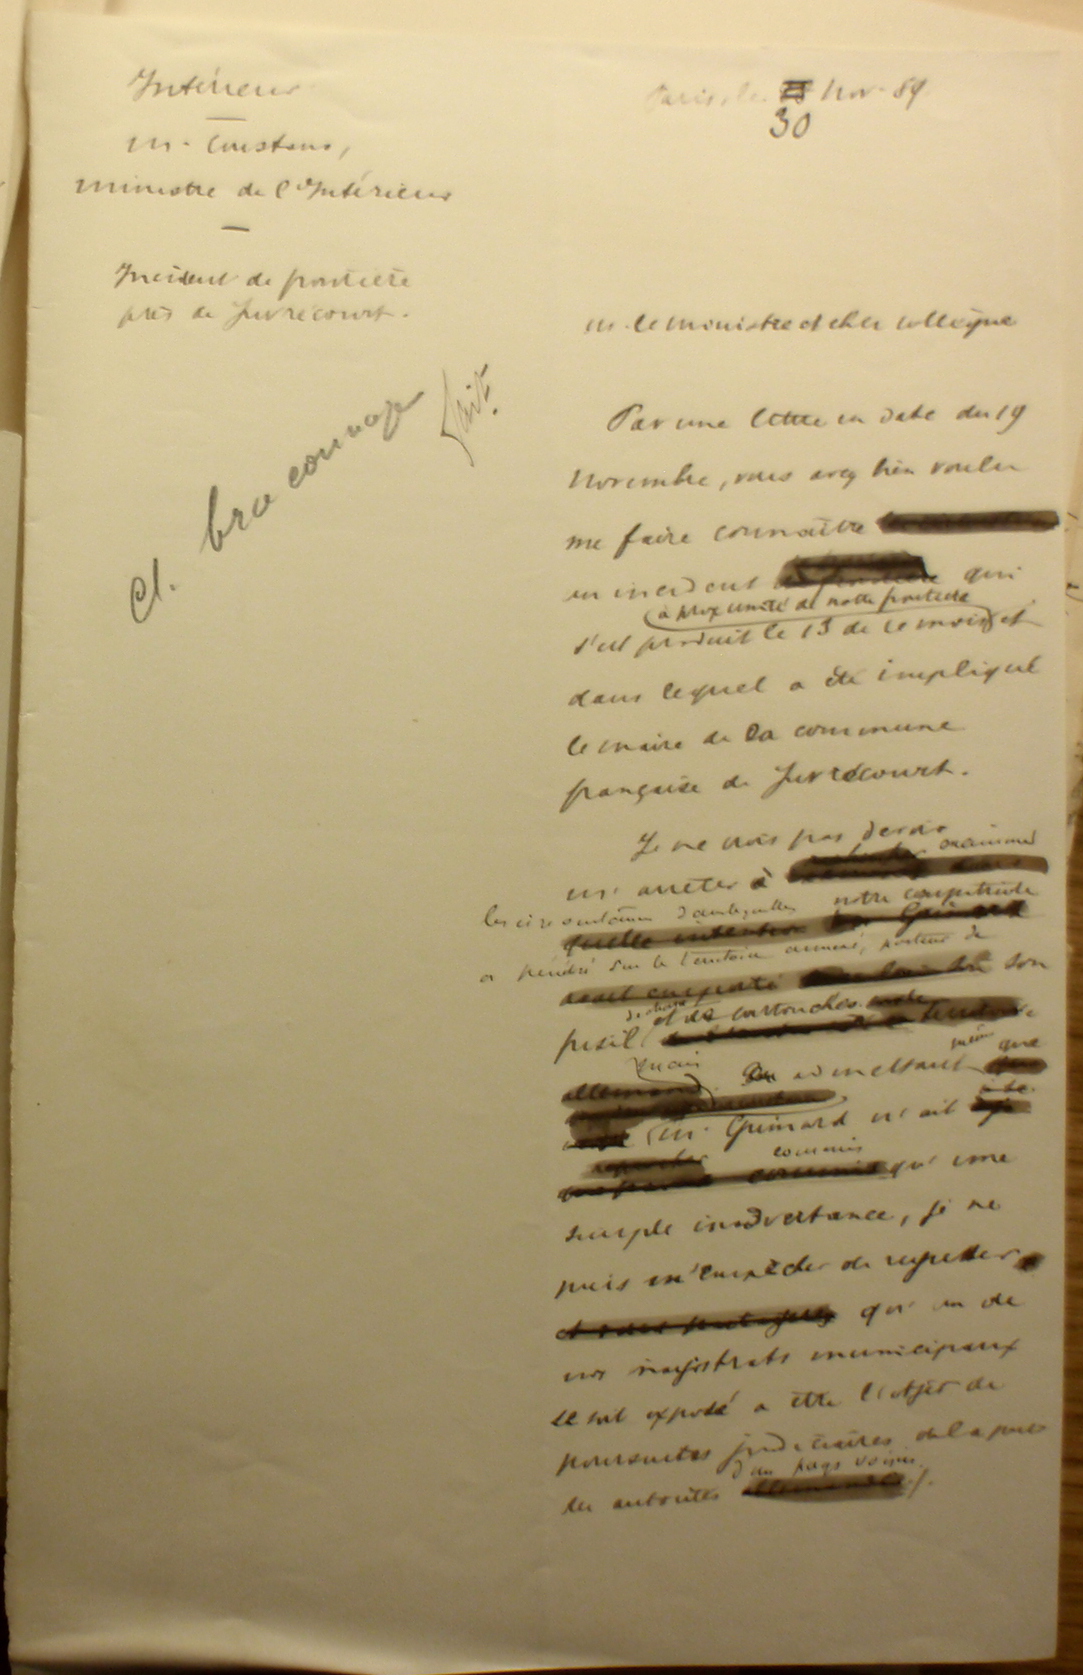 Intérieur
M. Constans,
Ministre de l'Intérieur
Incident de frontière
près de Juvrecourt.
Cl. braconnage
fait.
Paris, le 30 Nov. 89
M. le ministre et cher collègue
Par une lettre en date du 19
novembre, vous avez bien voulu
me faire connaître
un incident qui
à proximité de notre frontière
s'est produit le 13 de ce mois et
dans lequel a été impliqué
le maire de la commune
française de Juvrecourt.
Je ne crois pas devoir
m'arrêter à examiner
les circonstances dans lesquelles notre compatriote
a pénétré sur le territoire annexé, porteur de
son
fusil et de cartouches
mais en admettant même que
M. Guimard n'ait
commis qu'une
simple inadvertance, je ne
puis m'empêcher de regretter
qu'un de
nos magistrats municipaux
se soit exposé a être l'objet de
poursuites judiciaires de la part
des autorités d'un pays voisin.